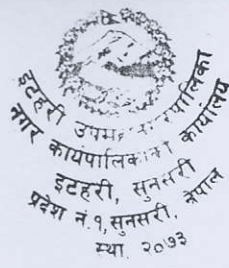 इटहरी उपम
नगर कार्यपालिका कार्यालय
इटहरी, सुनसरी
प्रदेश नं. १, सुनसरी, नेपाल
स्था. २०७३